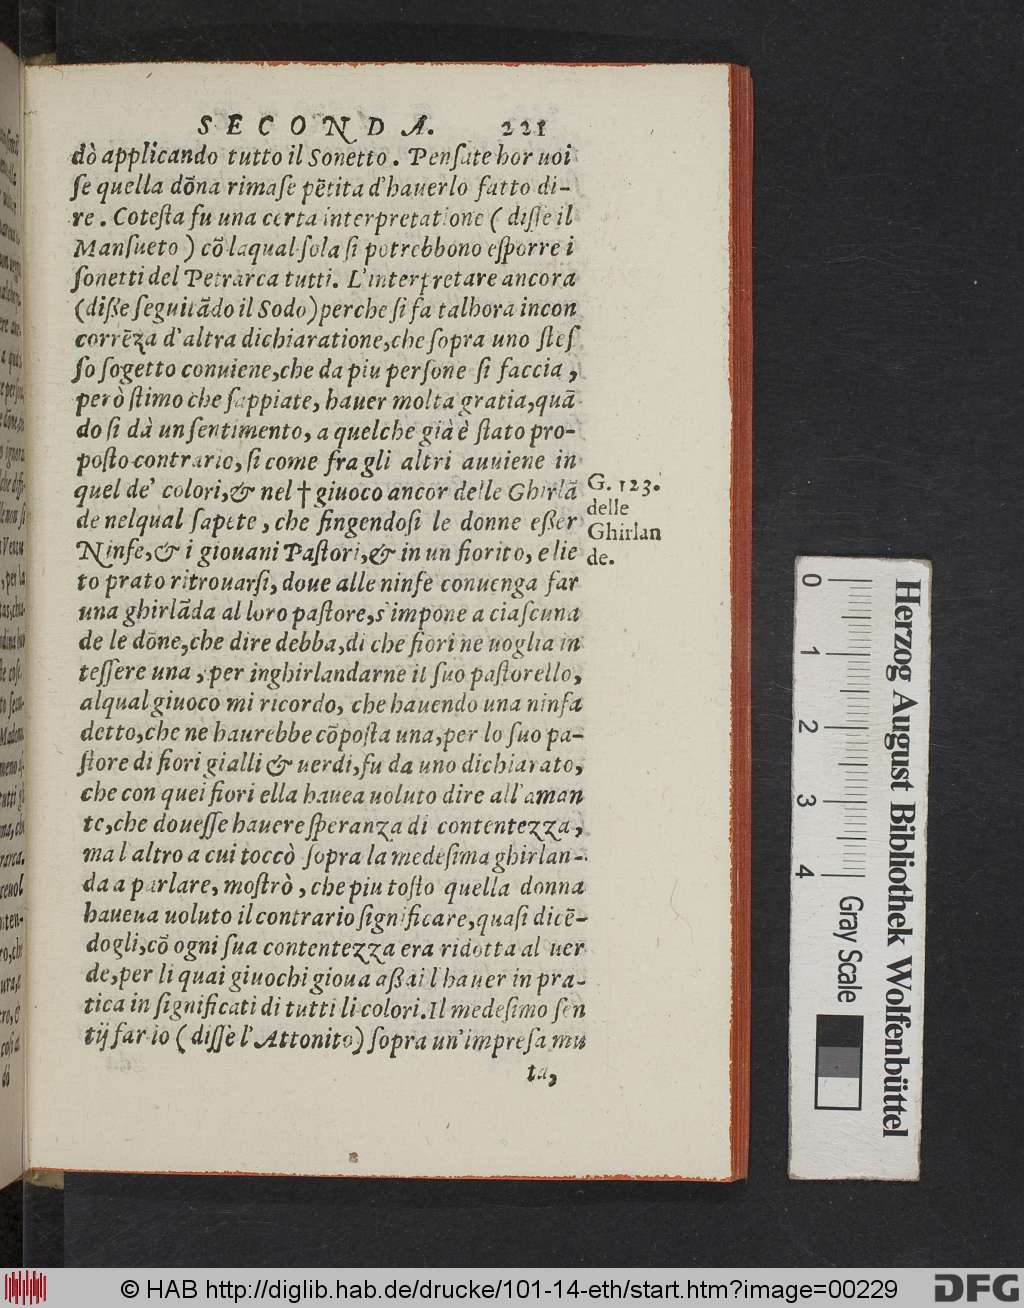 SECONDA. 221
dò applicando tutto il Sonetto. Penſate hor uoi
ſe quella dōna rimaſe pētita d'hauerlo fatto di-
re. Coteſta fu una certa interpretatione (diſſe il
Manſueto) cō laqual ſola ſi potrebbono eſporre i
ſonetti del Petrarca tutti. L'interpretare ancora
(diße ſeguitādo il Sodo) perche ſi fa talhora incon
corrēza d'altra dichiaratione, che ſopra uno steſ
ſo ſogetto conuiene, che da piu perſone ſi faccia,
però ſtimo che ſappiate, hauer molta gratia, quā
do ſi dà un ſentimento, a quelche già è ſtato pro-
poſto contrario, ſi come fra gli altri auuiene in
quel de' colori, & nel † giuoco ancor delle Ghirlā
de nelqual ſapete, che fingendoſi le donne eßer
Ninfe, & i giouani Paſtori, & in un fiorito, e lie
to prato ritrouarſi, doue alle ninfe conuenga far
una ghirlāda al loro paſtore, s'impone a ciaſcuna
de le dōne, che dire debba, di che fiori ne uoglia in
teſſere una, per inghirlandarne il ſuo paſtorello,
alqual giuoco mi ricordo, che hauendo una ninfa
detto, che ne haurebbe cōpoſta una, per lo ſuo pa-
ſtore di fiori gialli & uerdi, fu da uno dichiarato,
che con quei fiori ella hauea uoluto dire all'aman
te, che doueſſe hauere ſperanza di contentezza,
ma l'altro a cui toccò ſopra la medeſima ghirlan-
da a parlare, moſtrò, che piu toſto quella donna
haueua uoluto il contrario ſignificare, quaſi dicē-
dogli, cō ogni ſua contentezza era ridotta al uer
de, per li quai giuochi gioua aßai l'hauer in pra-
tica in ſignificati di tutti li colori. Il medeſimo ſen
tij far io (diſſe l'Attonito) ſopra un'impreſa mu
ta,
G. 123.
delle
Ghirlan
de.
0 1 2 3 4
Gray Scale
Herzog August Bibliothek Wolfenbüttel
© HAB http://diglib.hab.de/drucke/101-14-eth/start.htm?image=00229
DFG